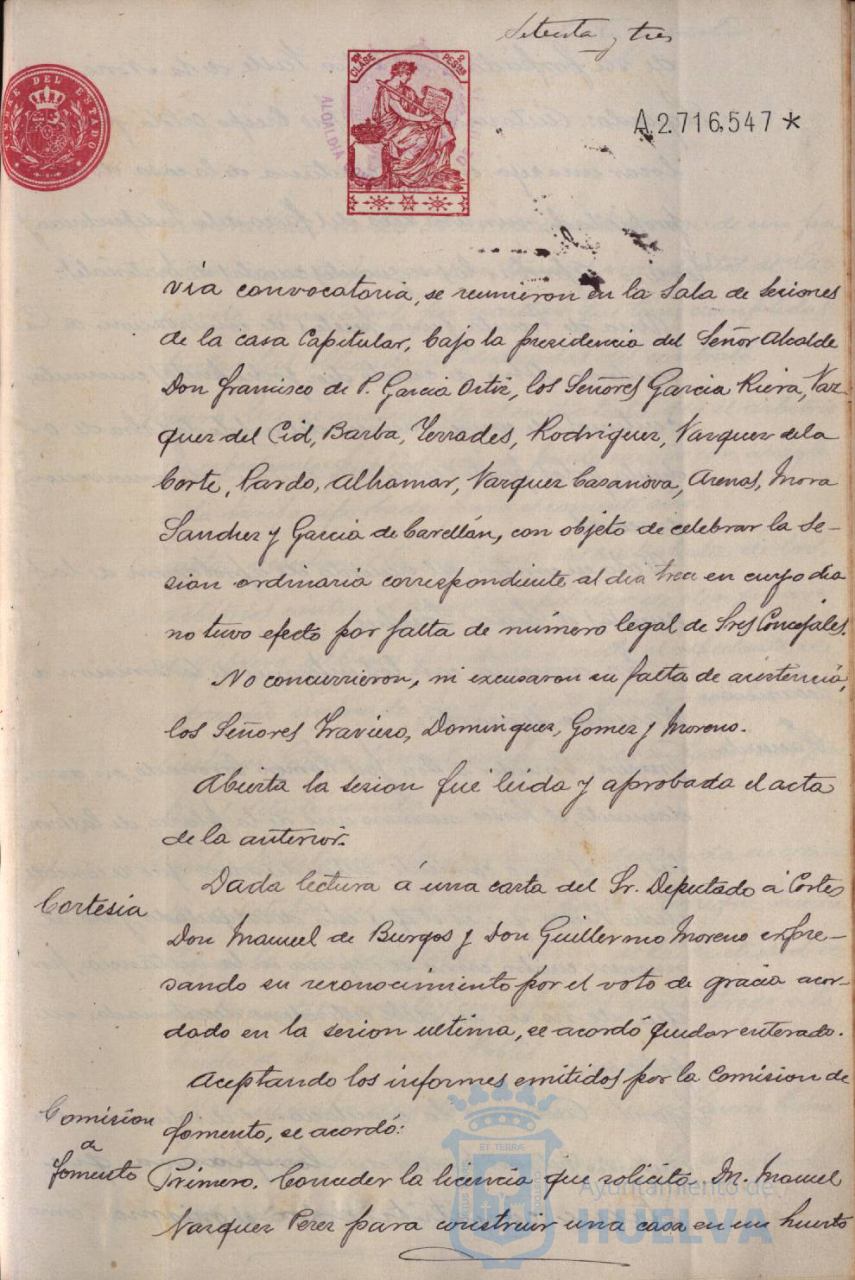 Setenta y tres
TIMBRE DEL ESTADO
CLASE
PESETAS
ALCALDIA
A.2.716,547 *
via convocatoria, se reunieron en la Sala de Sesiones
de la casa Capitular, bajo la presidencia del Señor Alcalde
Don Francisco de P. Garcia Ortiz, los Señores Garcia Riera, Vaz-
quez del Cid, Barba, Terrades, Rodriguez, Vazquez de la
Corte, Pardo, Alhamar, Vazquez Casanova, Arenas, Mora
Sanchez y Garcia de Carellán, con objeto de celebrar la se-
sion ordinaria correspondiente al dia trece en cuyo dia
no tuvo efecto por falta de número legal de Sres Concejales.
No concurrieron, ni excusaron su falta de asistencia,
los Señores Travieso, Dominguez, Gomez y Moreno.
Abierta la sesion fué leida y aprobada el acta
de la anterior.
Cortesia
Dada lectura á una carta del Sr. Diputado á Cortes
Don Manuel de Burgos y Don Guillermo Moreno expre-
sando su reconocimiento por el voto de gracia acor-
dado en la sesion ultima, se acordó quedar enterado.
Aceptando los informes emitidos por la Comision de
Comision
de
fomento
fomento, se acordó:
Primero. Conceder la licencia que solicita M. Manuel
Vazquez Perez para construir una casa en un huerto
Ayuntamiento de
HUELVA